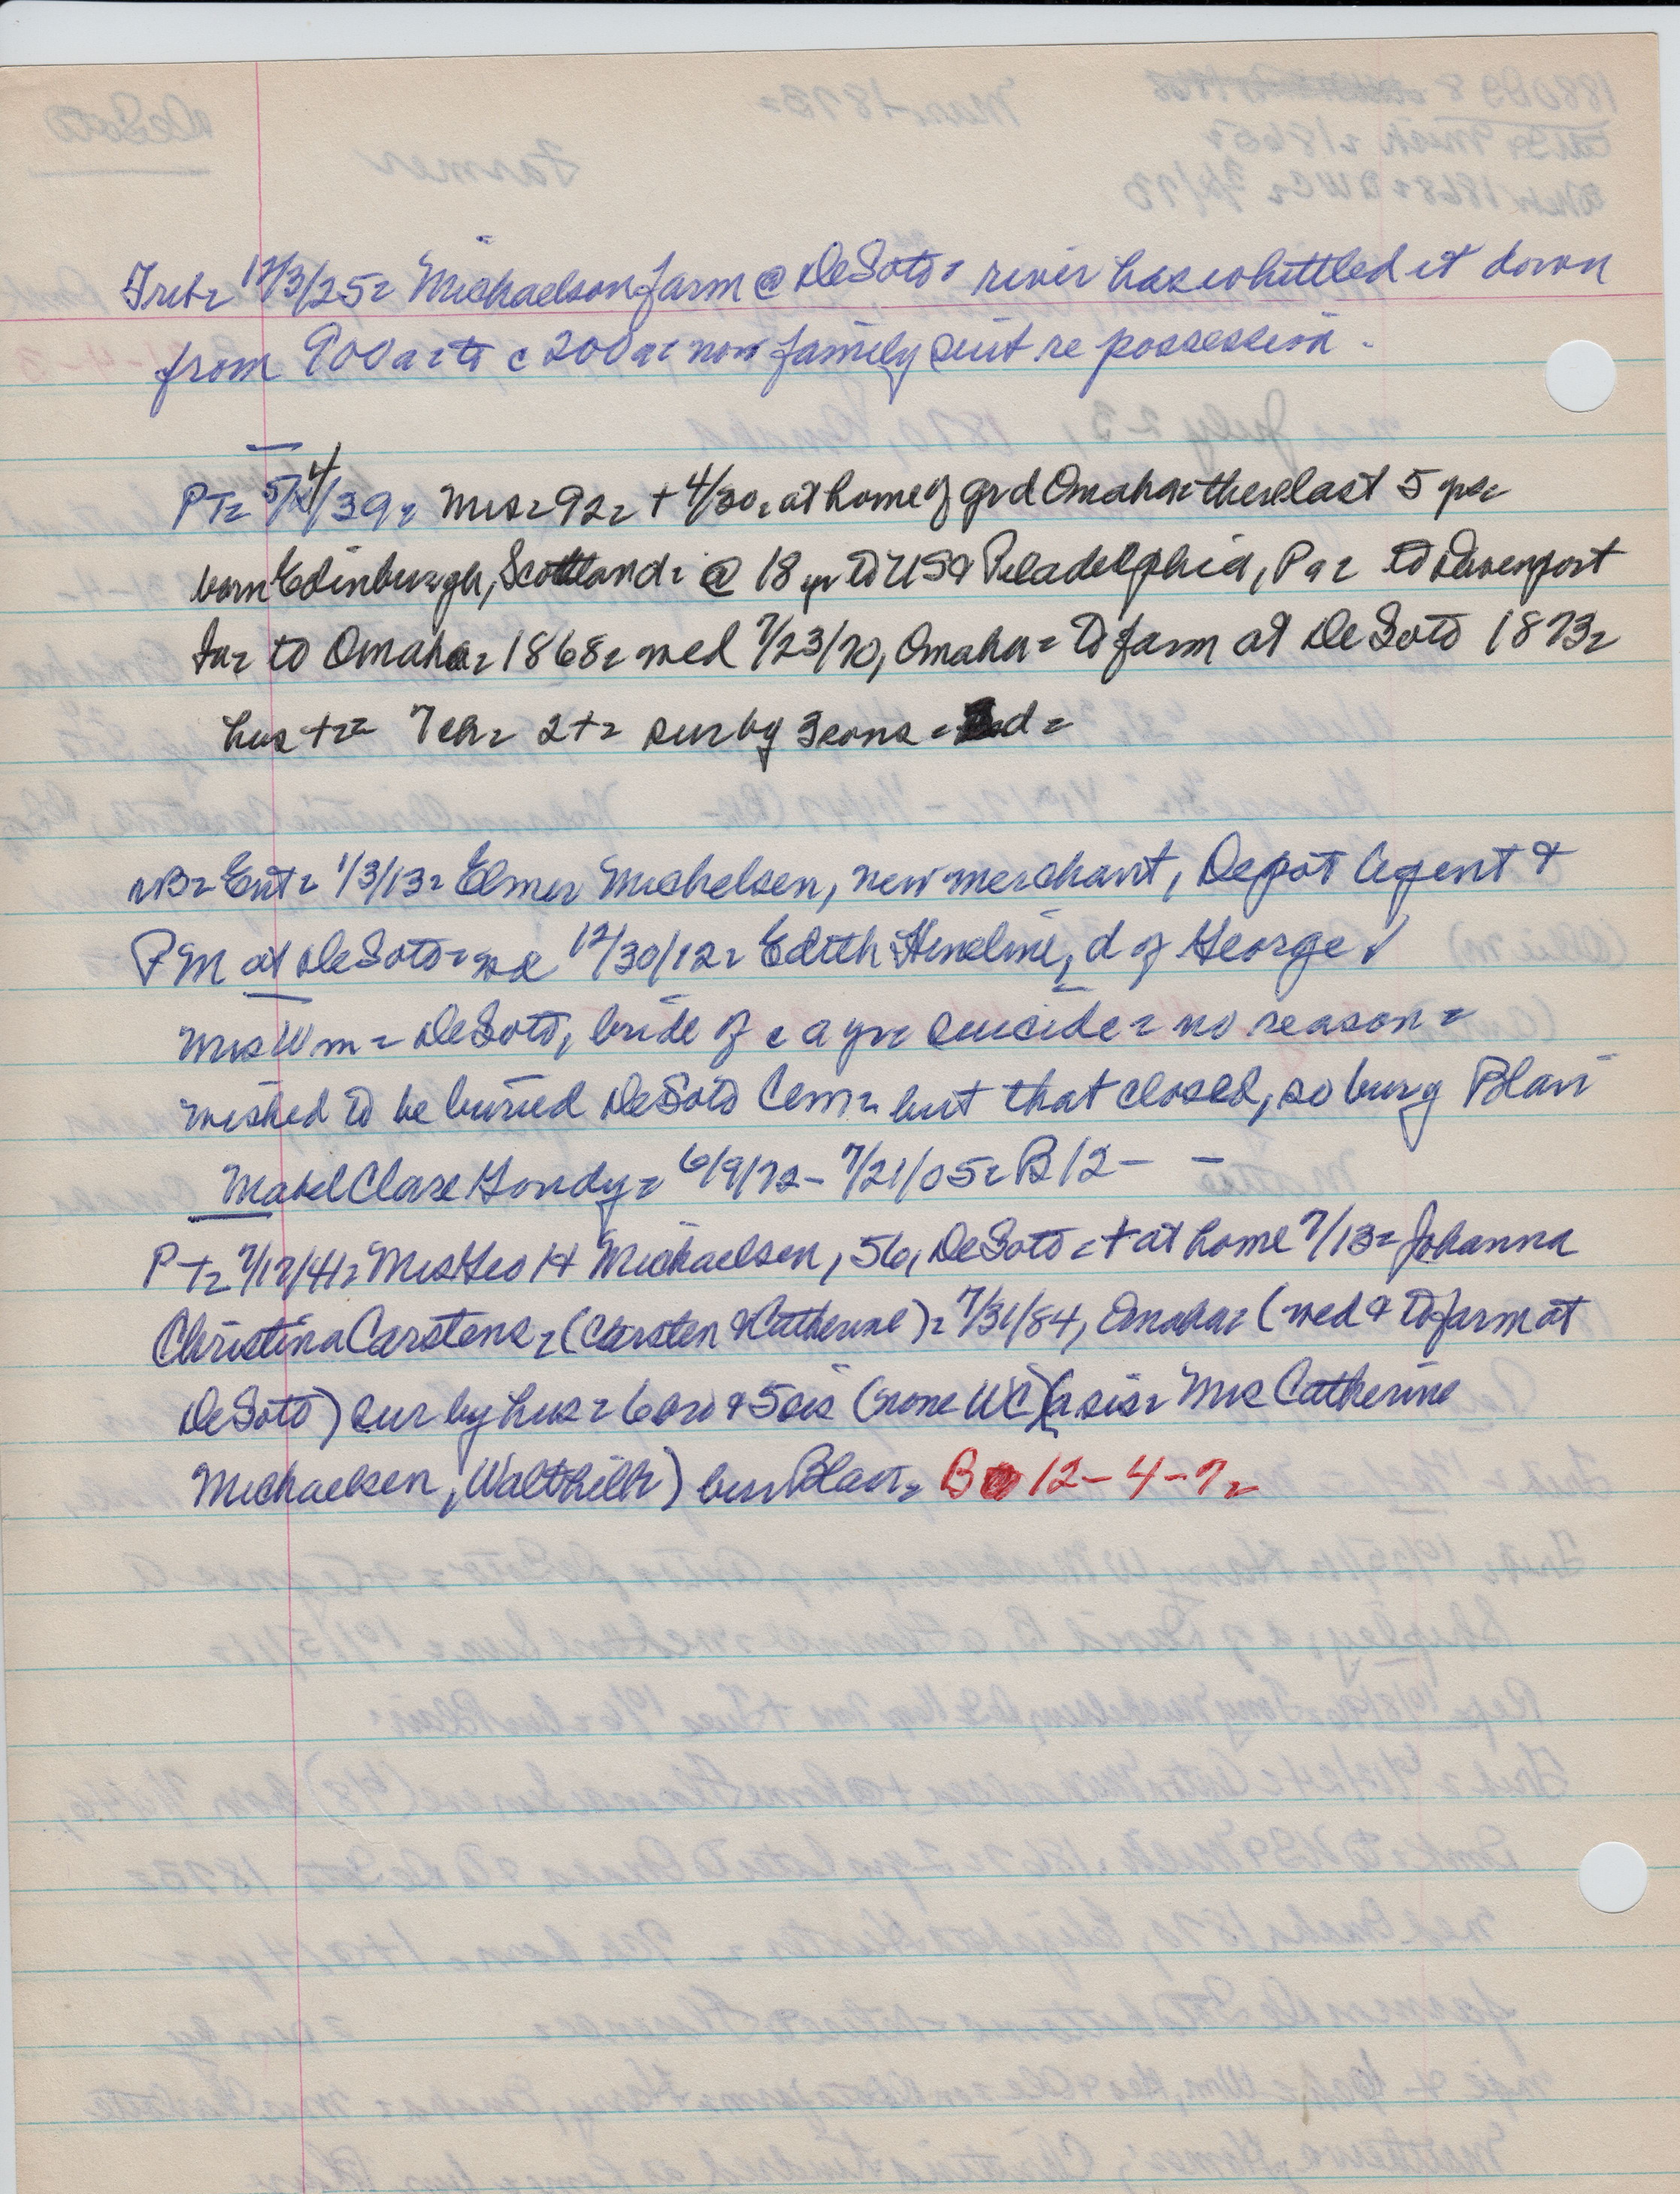 Trib= 12/3/25= Michaelson farm @ DeSoto= river has whittled it down
from 900a= to c 200a= now family suit re possession.
PT= 5/4/39= Mrs= 92= + 4/30= at home of grd Omaha= there last 5 yrs=
born Edinburgh, Scotland= @ 18 yr to US & Piladelphia, Pa= to Davenport
Ia= to Omaha= 1868= wed 7/23/70, Omaha= to farm at DeSoto 1873=
hus += 7 ch= 2+= sur by 3 sons = d=
Ent= 1/3/13= Elmer Michelsen, new merchant, Depot Agent &
PM at DeSoto= 12/30/12= Edith Hineline, d of George
Mrs Wm= DeSoto, bride of c a yr= suicide= no reason=
wished to be buried DeSoto Cem= but that closed, so burg Blair
Mabel Clare Gondy= 6/9/72- 7/21/05= B12- -
PT= 7/17/41= Mrs Geo H Michaelsen, 56, DeSoto = + at home 7/13= Johanna
Christina Carstens= (Carsten & Catherine)= 7/31/84, Omaha= (wed & to farm at
DeSoto) sur by hus= 6 bro & 5 sis (none WC) (a sis= Mrs Catherine
Michaelsen, Walthill) bur Blair= B 12-4-7=